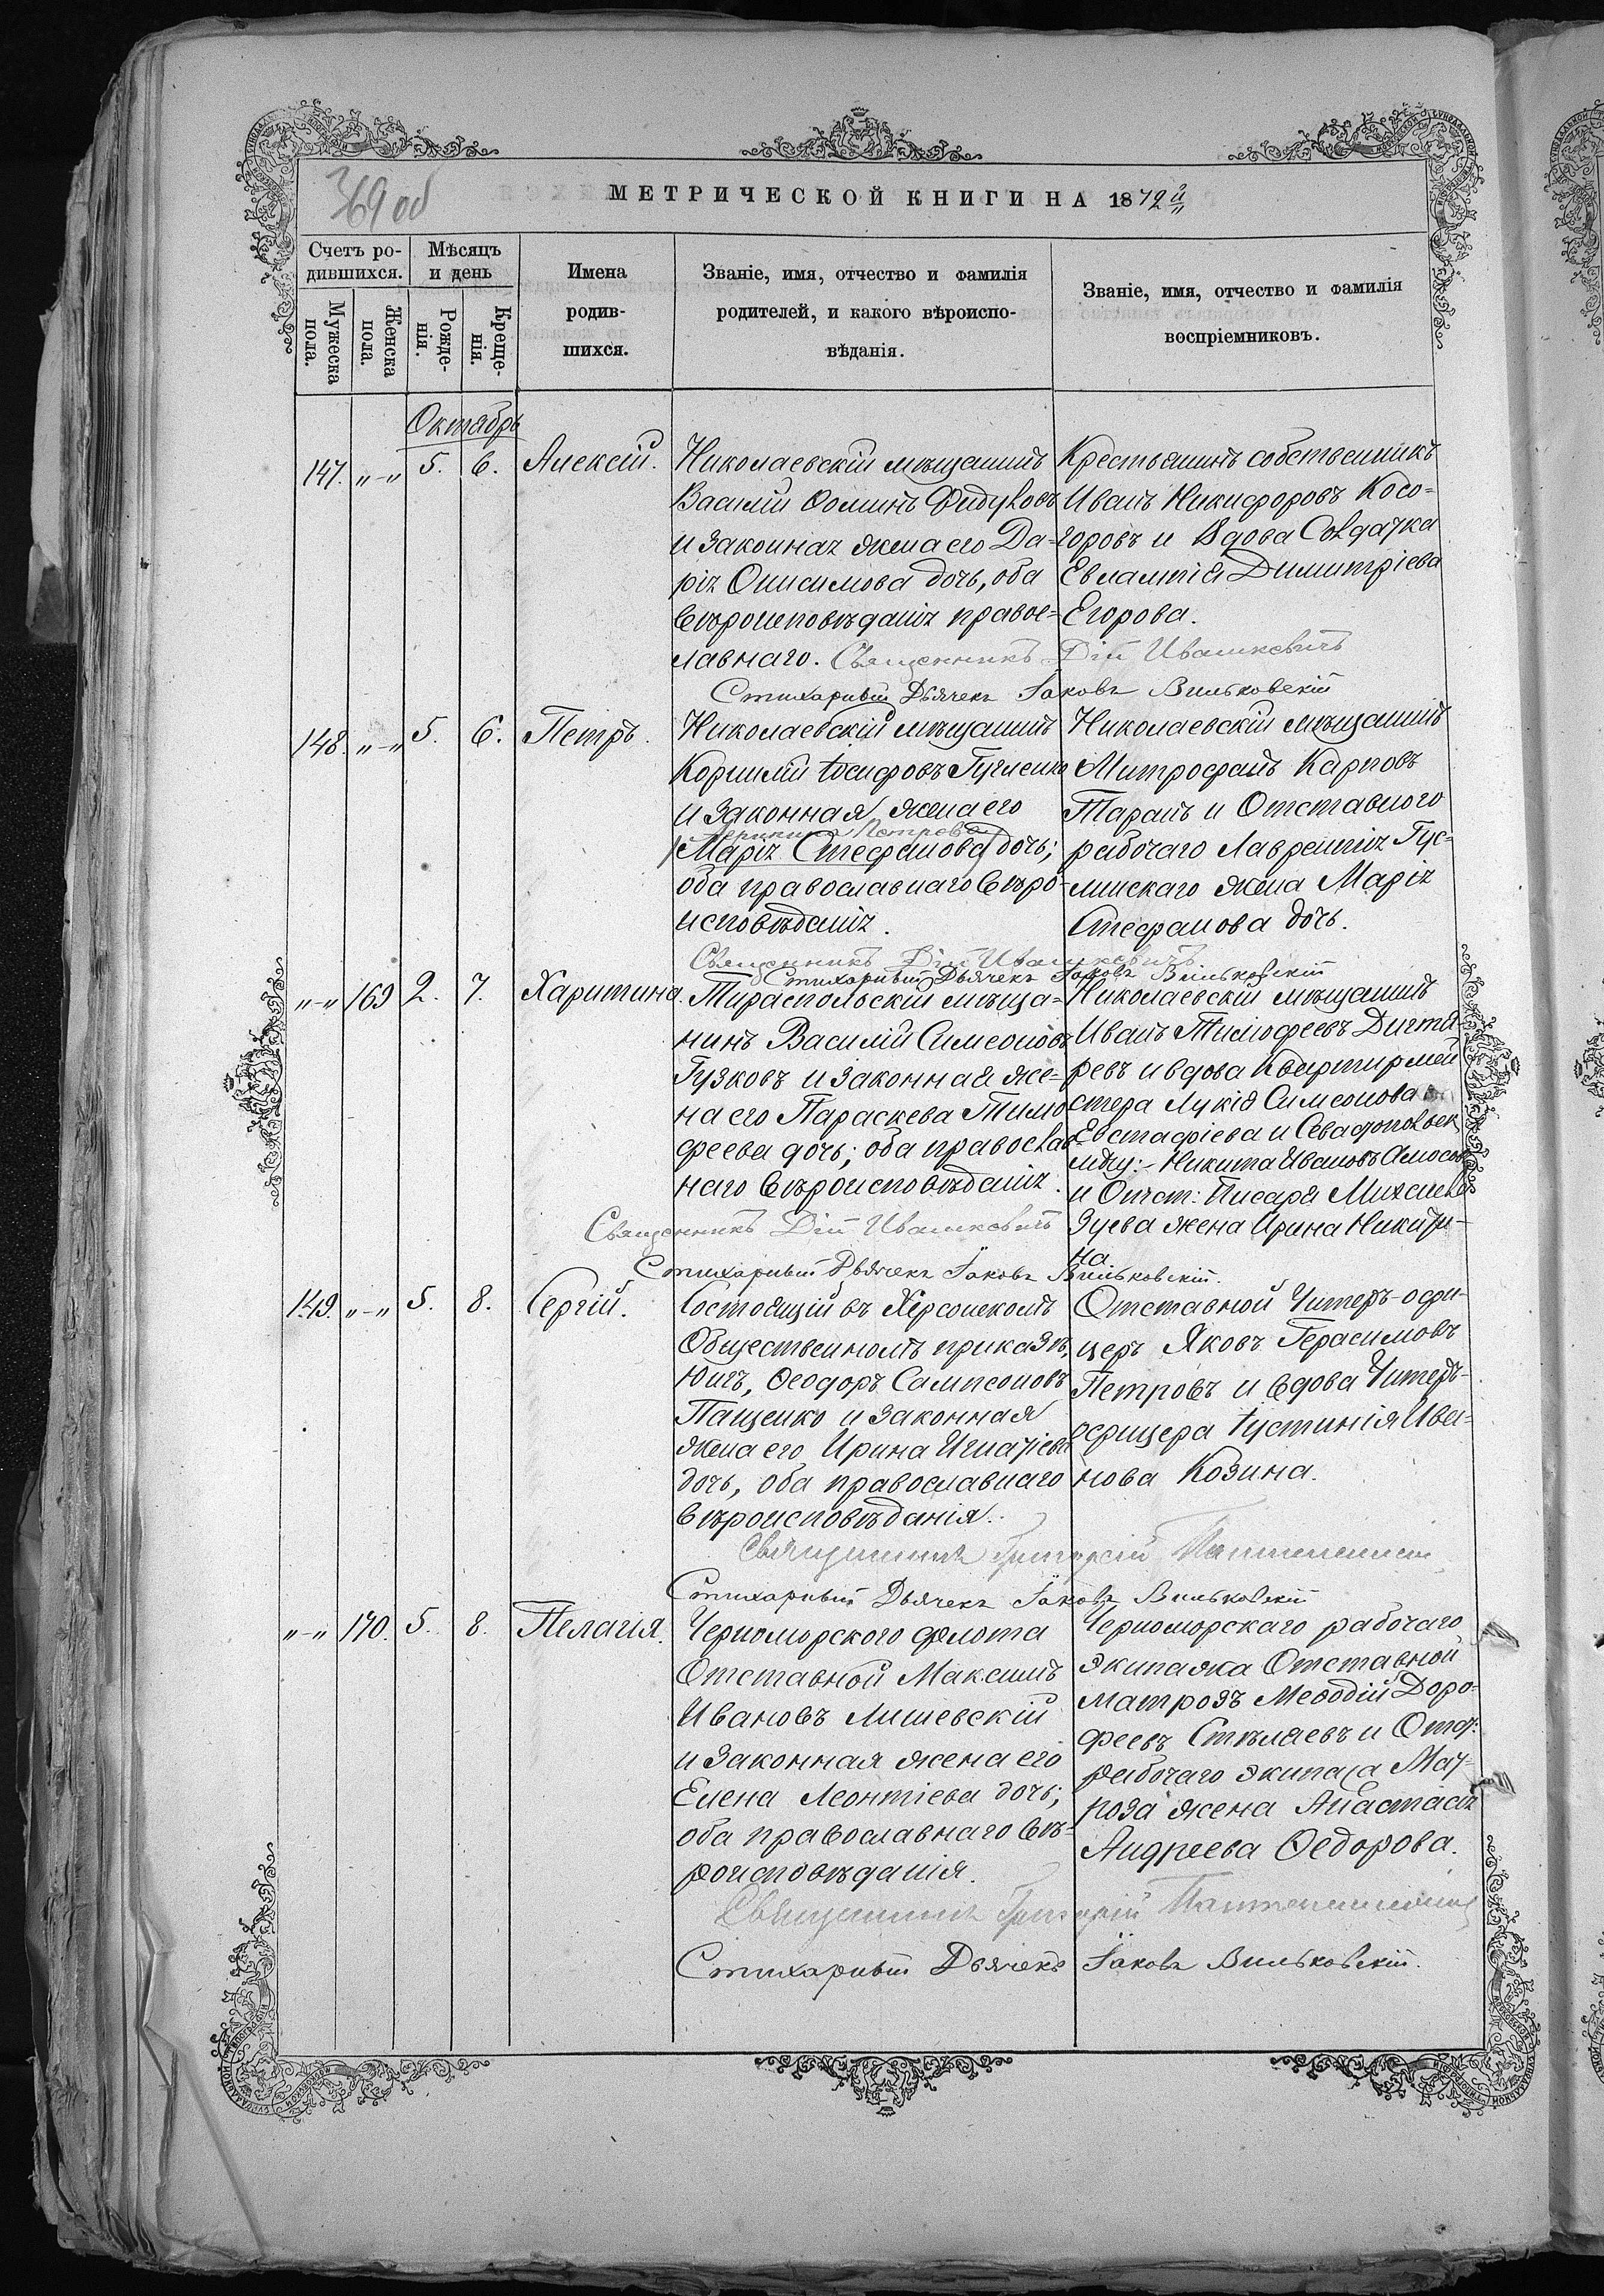 369 об
МЕТРИЧЕСКОЙ КНИГИ НА 1872й
Счетъ ро-
дившихся.
Мѣсяцъ
и день
Мужеска
пола.
Женска
пола.
Рожде-
нія.
Креще-
нія.
Имена
родив-
шихся.
Званіе, имя, отчество и фамилія
родителей, и какого вѣроиспо-
вѣданія.
Званіе, имя, отчество и фамилія
воспріемниковъ.
Октябрь
147. „-„ 5. 6. Алексій.
Николаевскій мѣщанинъ
Василій Ѳоминъ
и законная жена его Да-
рія Онисимова дочь, оба
вѣроисповѣданія правос-
лавнаго. Священникъ Дій Ивашкевичъ
Стихарный Дьячекъ Іаковъ Вильковскій
Крестьянинъ собственникъ
Иванъ Никифоровъ Косо-
горовъ и Вдова Солдатка
Евлампія Димитріева
Егорова.
148. „-„ 5. 6. Петръ.
Николаевскій мѣщанинъ
Корнилій Іосифовъ
и законная жена его
Петрова
(Марія Стефанова) дочь;
оба православнаго вѣро-
исповѣданія.
Священникъ Дій Ивашкевичъ
Стихарный Дьячекъ Іаковъ Вильковскій
Николаевскій мѣщанинъ
Митрофанъ Карповъ
Таранъ и Отставного
рабочаго Лаврентія Гус-
линскаго жена Марія
Стефанова дочь.
„-„ 169 2. 7. Харитина.
Тираспольскій мѣща-
нинъ Василій Симеоновъ
Гузковъ и законная же-
на его Параскева Тимо-
феева дочь; оба православ-
наго вѣроисповѣданія.
Священникъ Дій Ивашкевичъ
Стихарный Дьячекъ Іаковъ Вильковскій.
Николаевскій мѣщанинъ
Иванъ Тимофеевъ Дигтя-
ревъ и вдова Квартирмей
стера Лукія Симеонова
Евстафіева и Севастопольск
мѣщ:- Никита Ивановъ Амосовъ
и Отст: Писаря Михаила
Зуева жена Ирина Никити-
на
149. „-„ 5. 8. Сергій.
Состоящій въ Херсонскомъ
Общественномъ приказѣ,
Ѳеодоръ Сампсоновъ
Пащенко и законная
жена его Ирина Игнатіева
дочь, оба православнаго
вѣроисповѣданія.
Священникъ Григорій
Стихарный Дьячекъ Іаковъ Вильковскій
Отставной Унтеръ-офи-
церъ Яковъ Герасимовъ
Петровъ и вдова Унтеръ-
офицера Іустинія Ива-
нова Козина.
„-„ 170. 5. 8. Пелагія.
Черноморского флота
Отставной Максимъ
Ивановъ Лишевскій
и законная жена его
Елена Леонтіева дочь;
оба православнаго вѣ-
роисповѣданія.
Священникъ Григорій
Стихарный Дьячекъ Іаковъ Вильковскій.
Черноморскаго рабочаго
экипажа Отставной
матрозъ Меѳодій Доро-
феевъ Стѣляевъ и Отст:
рабочаго экипажа Мат-
роза жена Анастасія
Андреева Ѳедорова.